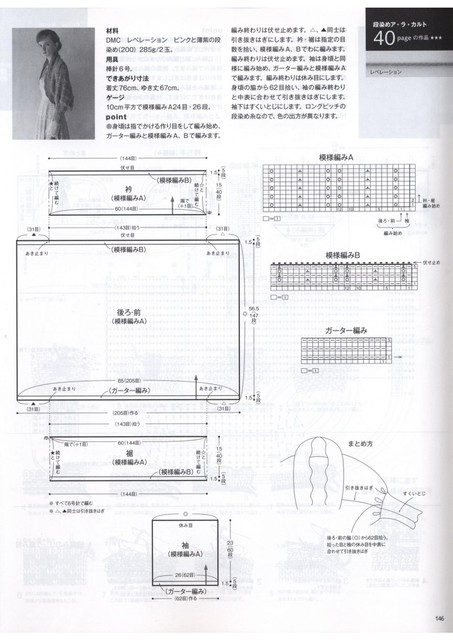 材料
DMC レベレーション ピンクと薄紫の段
染め(200) 285g/2玉。
用具
棒針6号。
できあがり寸法
着丈76cm、ゆき丈67cm。
ゲージ
10cm平方で模様編みA24目・26段。
point
※身頃は指でかける作り目をして編み始め、
ガーター編みと模様編みA、Bで編みます。
編み終わりは伏せ止めます。△、▲同士は
引き抜きはぎにします。衿・裾は指定の目
数を拾い、模様編みA、Bでわに編みます。
編み終わりは伏せ止めます。袖は身頃と同
様に編み始め、ガーター編みと模様編みA
で編みます。編み終わりは休み目にします。
身頃の脇から62目拾い、袖の編み終わり
と中表に合わせて引き抜きはぎにします。
袖下はすくいとじにします。ロングピッチの
段染め糸なので、色の出方が異なります。
段染めア・ラ・カルト
40 pageの作品 ★★★
レベレーション
(144目)
伏せ止め
(模様編みB)
衿
(模様編みA)
続けて編む
続けて編む
60(144目)
1.5
15
40段
(143目)拾う
(31目)
(31目)
伏せ止め
あき止まり
(模様編みB)
あき止まり
1.5
後ろ・前
(模様編みA)
56.5
147段
85(205目)
あき止まり
(ガーター編み)
あき止まり
1.5
(31目)
(31目)
(205目)作る
(143目)拾う
60(144目)
続けて編む
裾
(模様編みA)
続けて編む
15
40段
(模様編みB)
1.5
(144目)
※ すべて6号針で編む
※ △、▲同士は引き抜きはぎ
休み目
袖
(模様編みA)
23
60段
26(62目)
(ガーター編み)
1.5
(62目)作る
模様編みA
衿・裾
編み始め
後ろ・前
袖
編み始め
模様編みB
伏せ止め
ガーター編み
まとめ方
引き抜きはぎ
すくいとじ
後ろ・前の脇(○)から62目拾う。
拾った目と袖の休み目を中表に
合わせて引き抜きはぎ
146